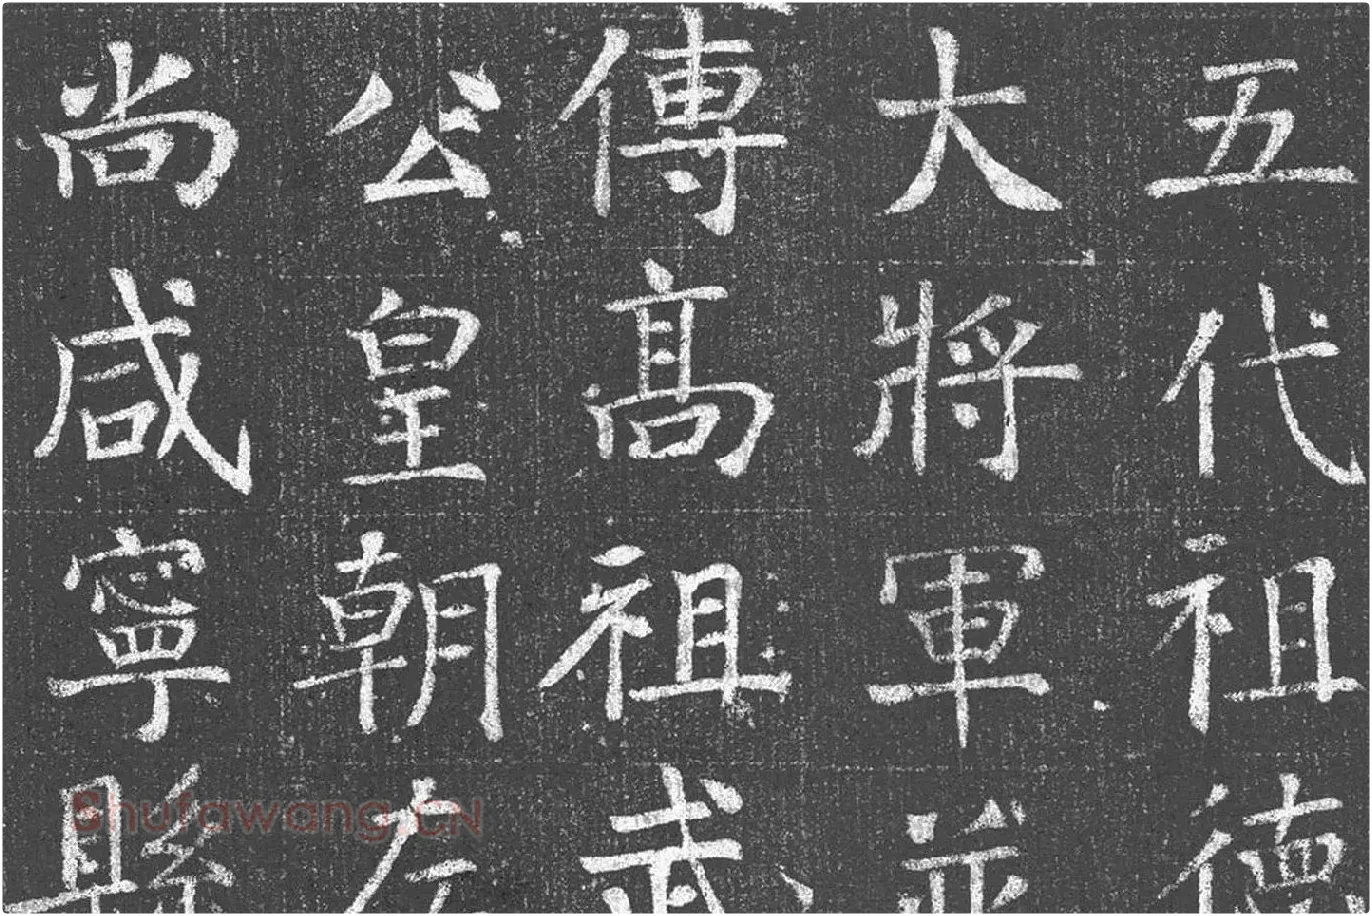 五代祖德
大將軍並
傳高祖武
公皇朝左
尚咸寧縣
Shufawang.CN